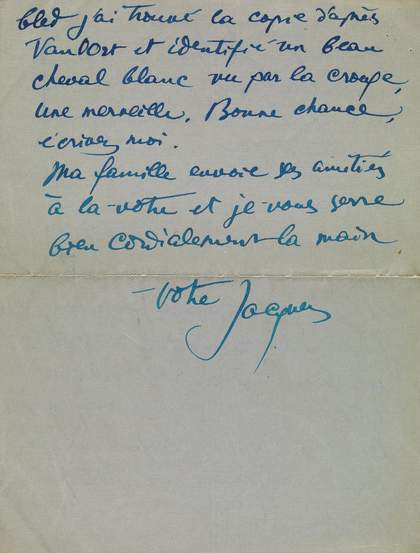 bled j'ai trouvé la copie d'après
Vandort et identifié un beau
cheval blanc vu par la croupe,
une merveille. Bonne chance,
écrivez moi.
Ma famille envoie ses amitiés
à la votre et je vous serre
bien cordialement la main
– votre Jacques